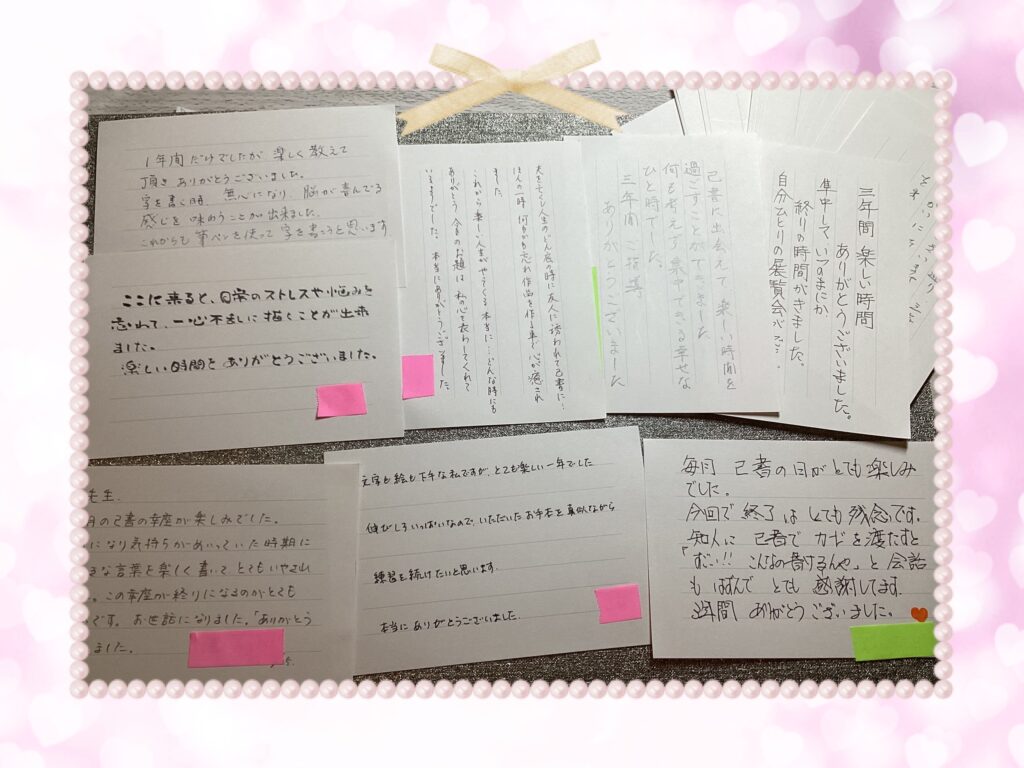 1年間だけでしたが楽しく教えて
頂きありがとうございました。
字を書く時、無心になり、脳が喜んでる
感じを味わうことが出来ました。
これからも筆ペンを使って字を書こうと思います
ここに来ると、日常のストレスや悩みを
忘れて、一心不乱に描くことが出来
ました。
楽しい時間をありがとうございました。
夫を亡くし人生のどん底の時に友人に誘われて己書に…
ほんの一時 何もかも忘れ 作品を作る事で心が癒され
ました
これから楽しい人生がやってくる本当に…どんな時にも
ありがとう 今月のお題は 私の心を表わしてくれて
いるようでした。本当にありがとうございました。
己書に出会えて楽しい時間を
過ごすことができました
何も考えず集中できる幸せな
ひと時でした。
三年間ご指導
ありがとうございました
三年間 楽しい時間
ありがとうございました。
集中して、いつのまにか
終りの時間がきました。
自分ひとりの展覧会が
先生、
月の己書の講座が楽しみでした。
になり気持ちが
っていた時期に
な言葉を楽しく書いて とてもいやされ
。この講座が終りになるのがとても
です。お世話になりました。「ありがとう
ました。
文字も絵も下手な私ですが、とても楽しい一年でした
伸びしろいっぱいなので、いただいたお手本を真似ながら
練習を続けたいと思います。
本当にありがとうございました。
毎月 己書の日がとても楽しみ
でした。
今回で終了はとても残念です。
知人に 己書でカードを渡すと
こんなの書けるんや」と会話
もはずんで とても感謝してます。
年間 ありがとうございました。